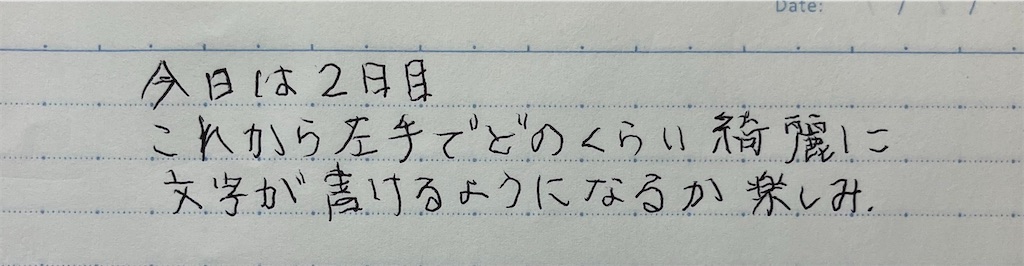 Date: / /
今日は2日目
これから左手でどのくらい綺麗に
文字が書けるようになるか楽しみ.